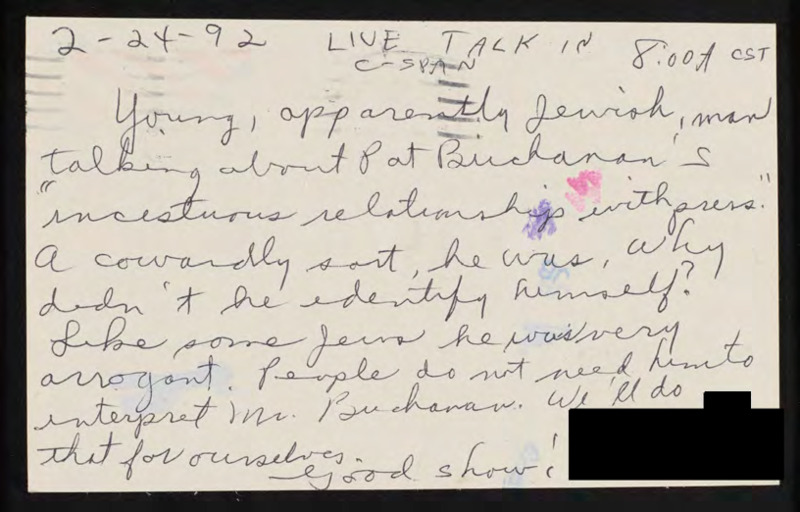 2-24-92 LIVE TALK IN 8:00A CST
C-SPAN
Young, apparently Jewish, man
talking about Pat Buchanan's
"incestuous relationship with press."
A cowardly sort, he was, why
didn't he identify himself?
Like some Jews he was very
arrogant. People do not need him to
interpret Mr. Buchanan. We'll do
that for ourselves.
—Good show!